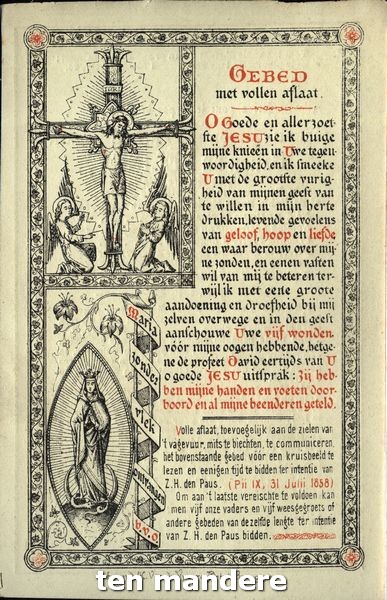 GEBED
met vollen aflaat.
O Goede en allerzoet-
ste JESU zie ik buige
mijne knieën in Uwe tegen-
woordigheid, en ik smeeke
U met de grootste vurig-
heid van mijnen geest van
te willen in mijn herte
drukken, levende gevoelens
van geloof, hoop en liefde
een waar berouw over mij-
ne zonden, en eenen vasten
wil van mij te beteren ter-
wijl ik met eene groote
aandoening en droefheid bij mij
zelven overwege en in den geest
aanschouwe Uwe vijf wonden.
vóór mijne oogen hebbende, hetge-
ne de profeet David eertijds van U
o goede JESU uitsprak: Zij heb-
ben mijne handen en voeten door-
boord en al mijne beenderen geteld.
Maria
zonder
vlek
ontvangen
b.v.o
Volle aflaat, toevoegelijk aan de zielen van
't vagevuur, mits te biechten, te communiceren,
het bovenstaande gebed vóór een kruisbeeld te
lezen en eenigen tijd te bidden ter intentie van
Z. H. den Paus. (Pii IX, 31 Julii 1858)
Om aan 't laatste vereischte te voldoen kan
men vijf onze vaders en vijf weesgegroets of
andere gebeden van dezelfde lengte ter intentie
van Z. H. den Paus bidden.
ten mandere